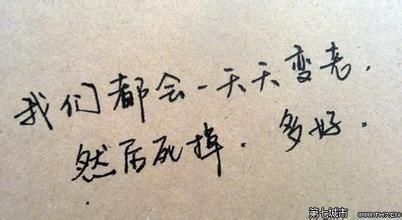 我们都会一天天变老.
然后死掉. 多好.
第七城市 WWW.TH7.CN